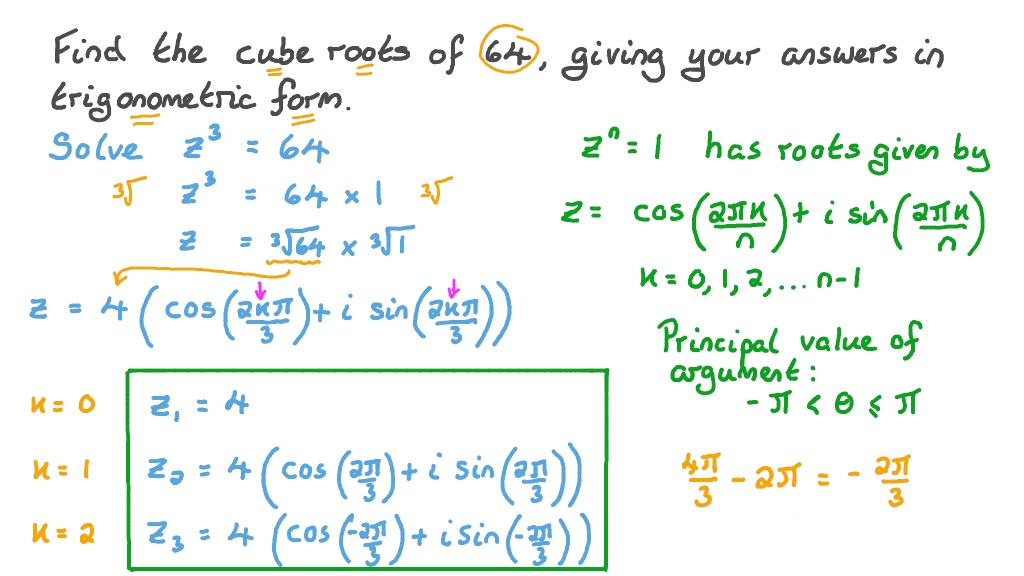 Find the cube roots of 64, giving your answers in
trigonometric form.
Solve z³ = 64
∛ z³ = 64 × 1 ∛
z = ∛64 × ∛1
z = 4 (cos (2kπ/3) + i sin (2kπ/3))
k = 0 z₁ = 4
k = 1 z₂ = 4 (cos (2π/3) + i sin (2π/3))
k = 2 z₃ = 4 (cos (-2π/3) + i sin (-2π/3))
zⁿ = 1 has roots given by
z = cos (2πk/n) + i sin (2πk/n)
k = 0, 1, 2, ... n-1
Principal value of
argument:
-π < θ ≤ π
4π/3 - 2π = -2π/3